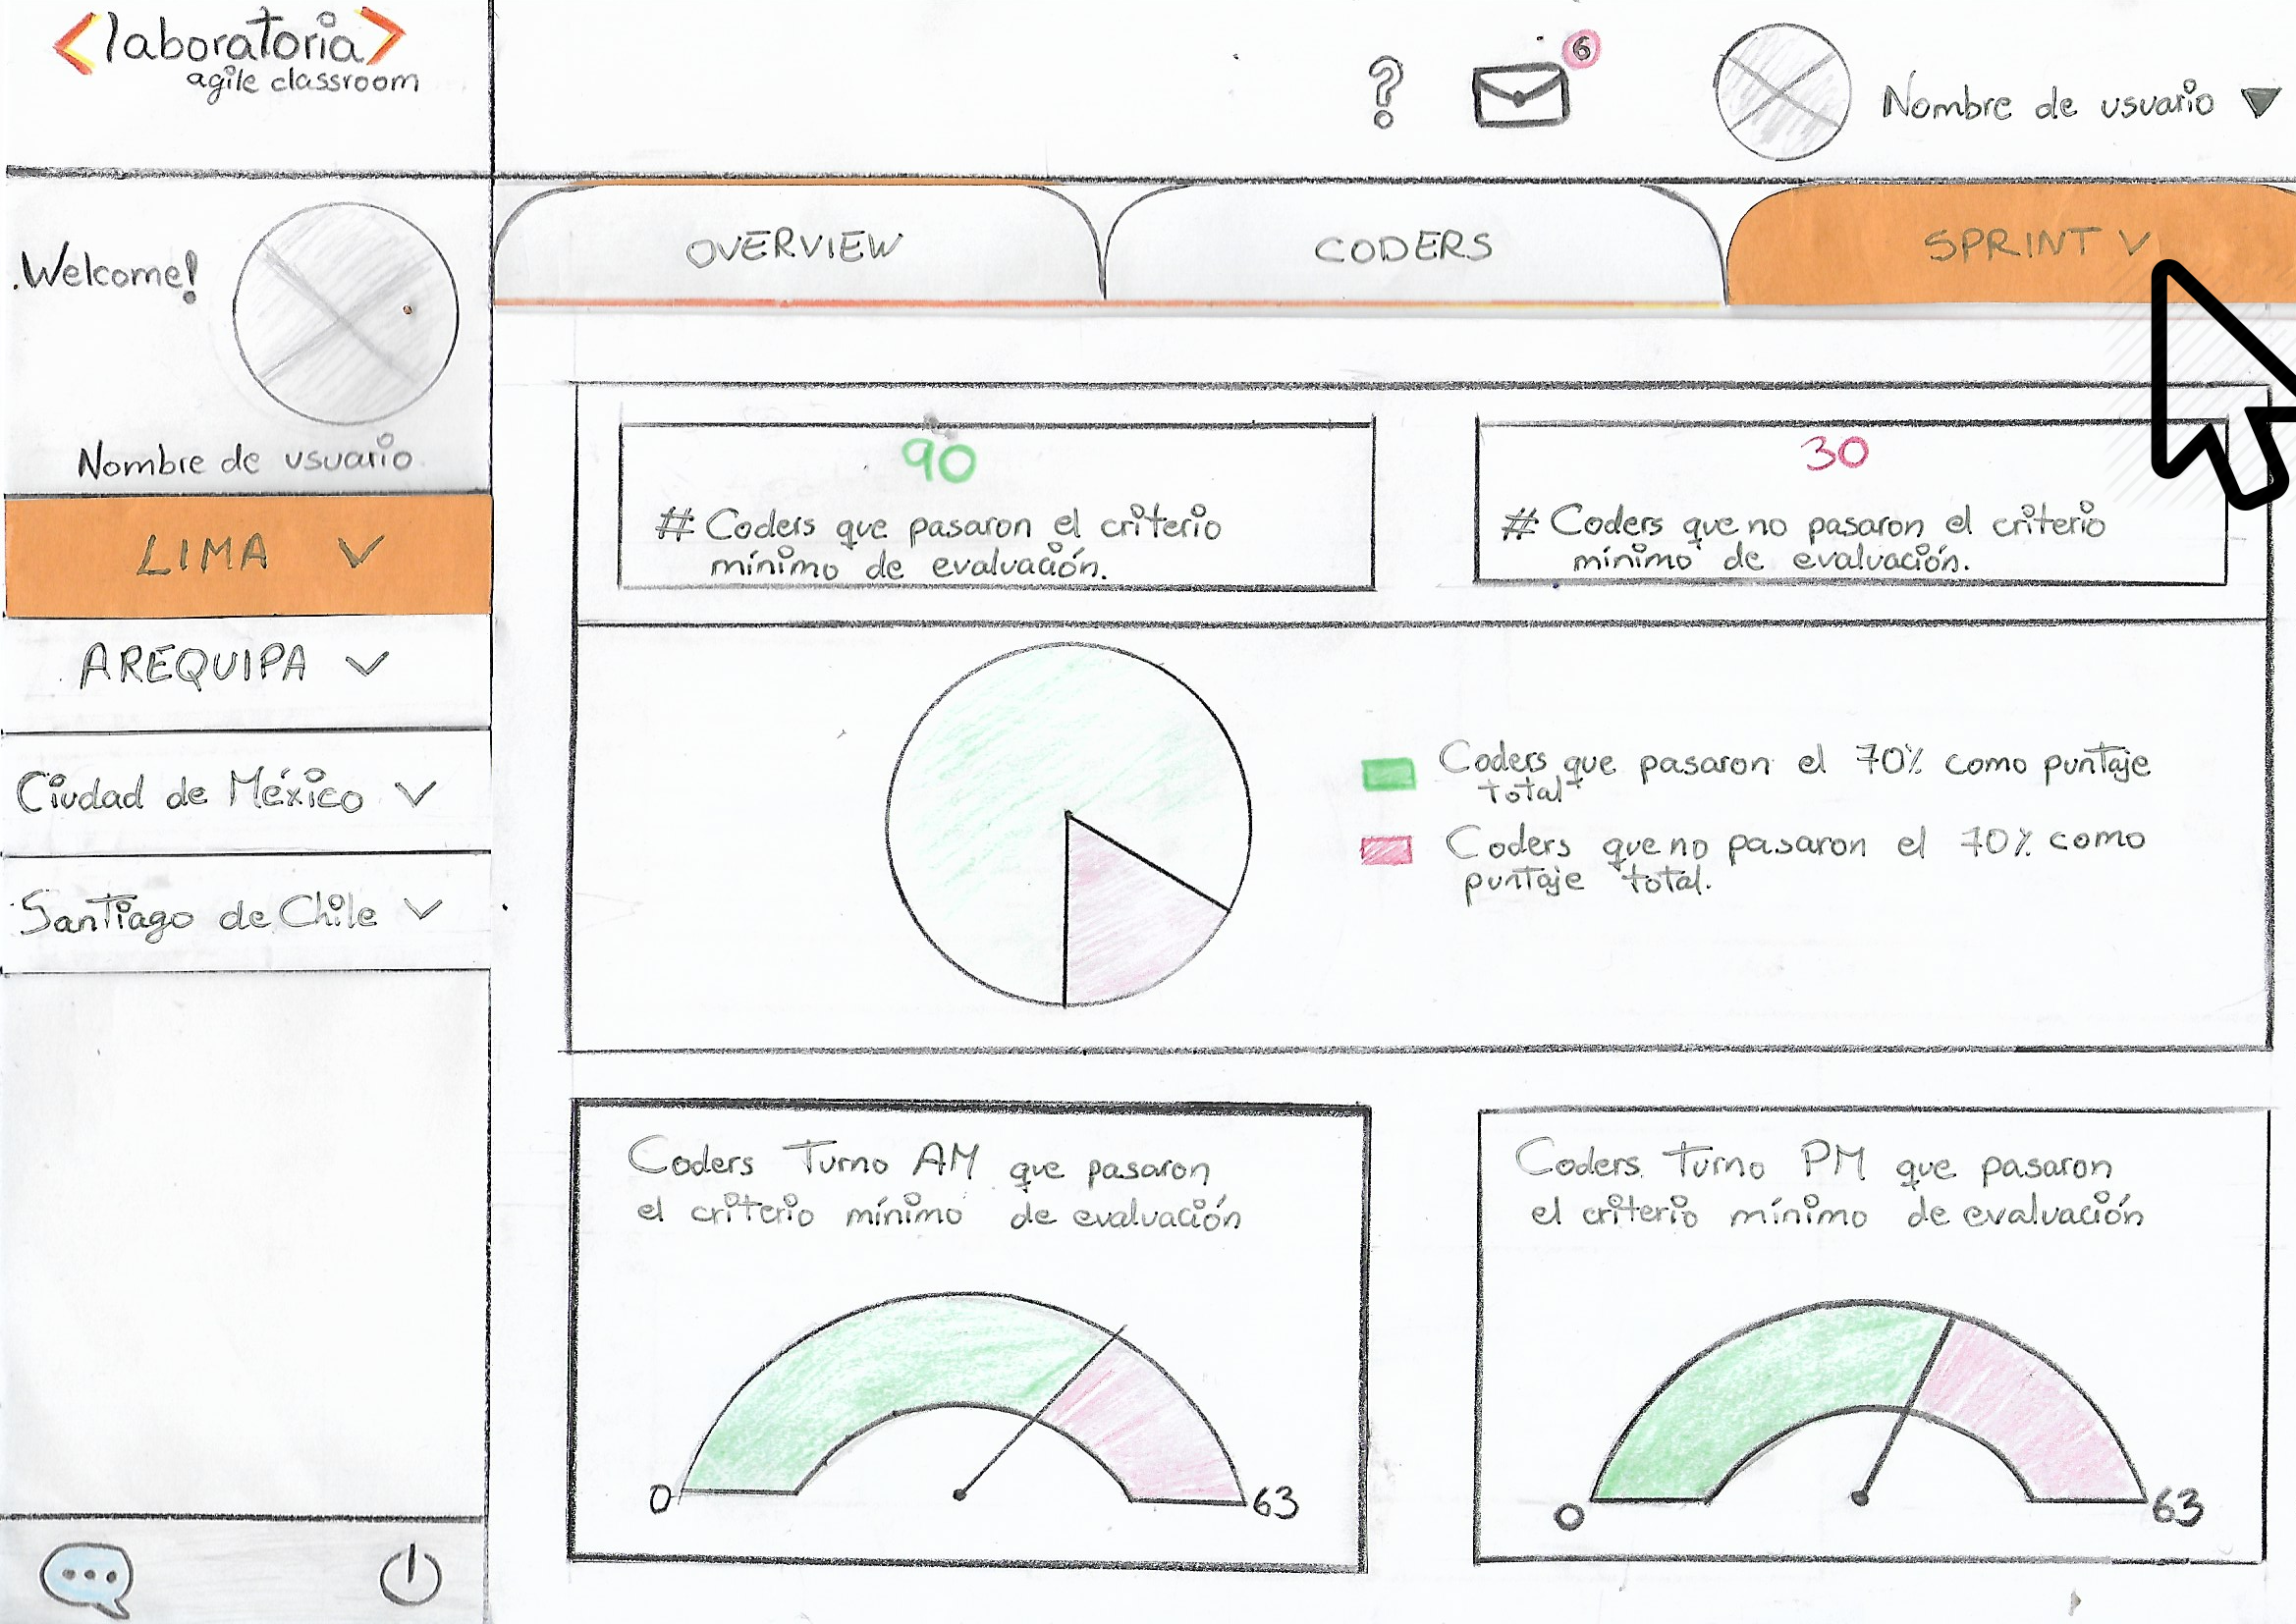 <laboratoria>
agile classroom
?
6
Nombre de usuario
Welcome!
Nombre de usuario
LIMA
AREQUIPA
Ciudad de México
Santiago de Chile
OVERVIEW
CODERS
SPRINT
90
# Coders que pasaron el criterio
mínimo de evaluación.
30
# Coders que no pasaron el criterio
mínimo de evaluación.
Coders que pasaron el 70% como puntaje
total
Coders que no pasaron el 70% como
puntaje total.
Coders Turno AM que pasaron
el criterio mínimo de evaluación
0
63
Coders Turno PM que pasaron
el criterio mínimo de evaluación
0
63